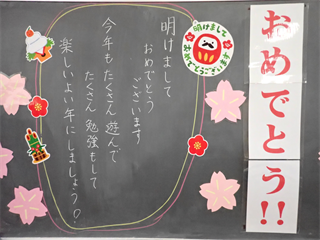 おめでとう!!
明けまして
おめでとうございます
明けまして
おめでとう
ございます
今年もたくさん遊んで
たくさん勉強もして
楽しいよい年にしましょう♪